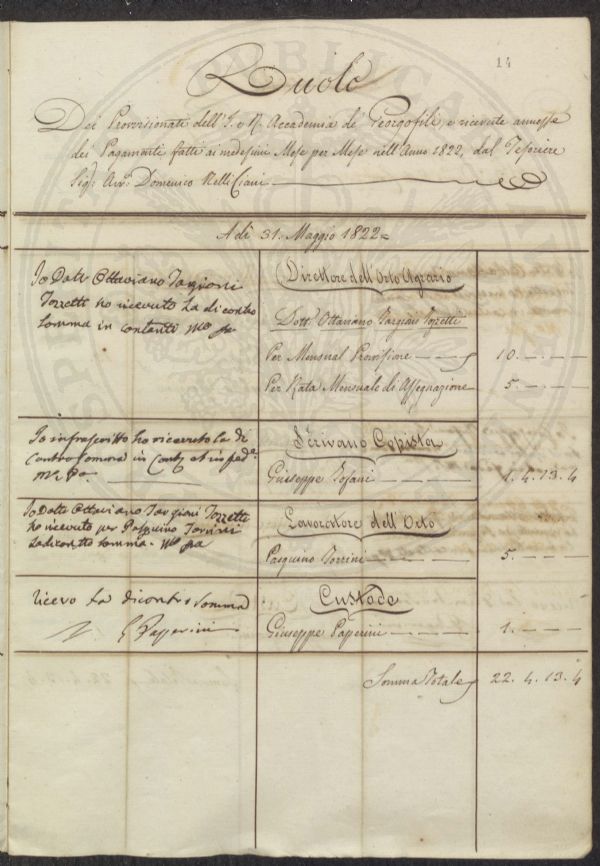 14
Ruolo
Dei Provvisionati dell'I. e R. Accademia de' Georgofili, e ricevute annesse
dei Pagamenti fatti ai medesimi Mese per Mese nell'Anno 1822, dal Tesoriere
Sigr. Avv. Domenico Nelli Ciani
A dì 31. Maggio 1822 =
Io Dott. Ottaviano Targioni
Tozzetti ho ricevuto la di contro
somma in contanti mo. pa.
Direttore dell'Orto Agrario
Dott. Ottaviano Targioni Tozzetti
Per Mensual Provvisione 10. — — —
Per Rata Mensuale di Assegnazione 5. — — —
Io infrascritto ho ricevuto la di
contro somma in Conti et in fede
Mo. Pa.
Scrivano Copista
Giuseppe 1. 4. 13. 4
Io Dott. Ottaviano Targioni Tozzetti
ho ricevuto per Pasquino Torrini
la di contro somma. Mo. pa.
Lavoratore dell'Orto
Pasquino Torrini 5. — — —
Ricevo la di contro somma
G. Papperini
Custode
Giuseppe Paperini 1. — — —
Somma Totale 22. 4. 13. 4